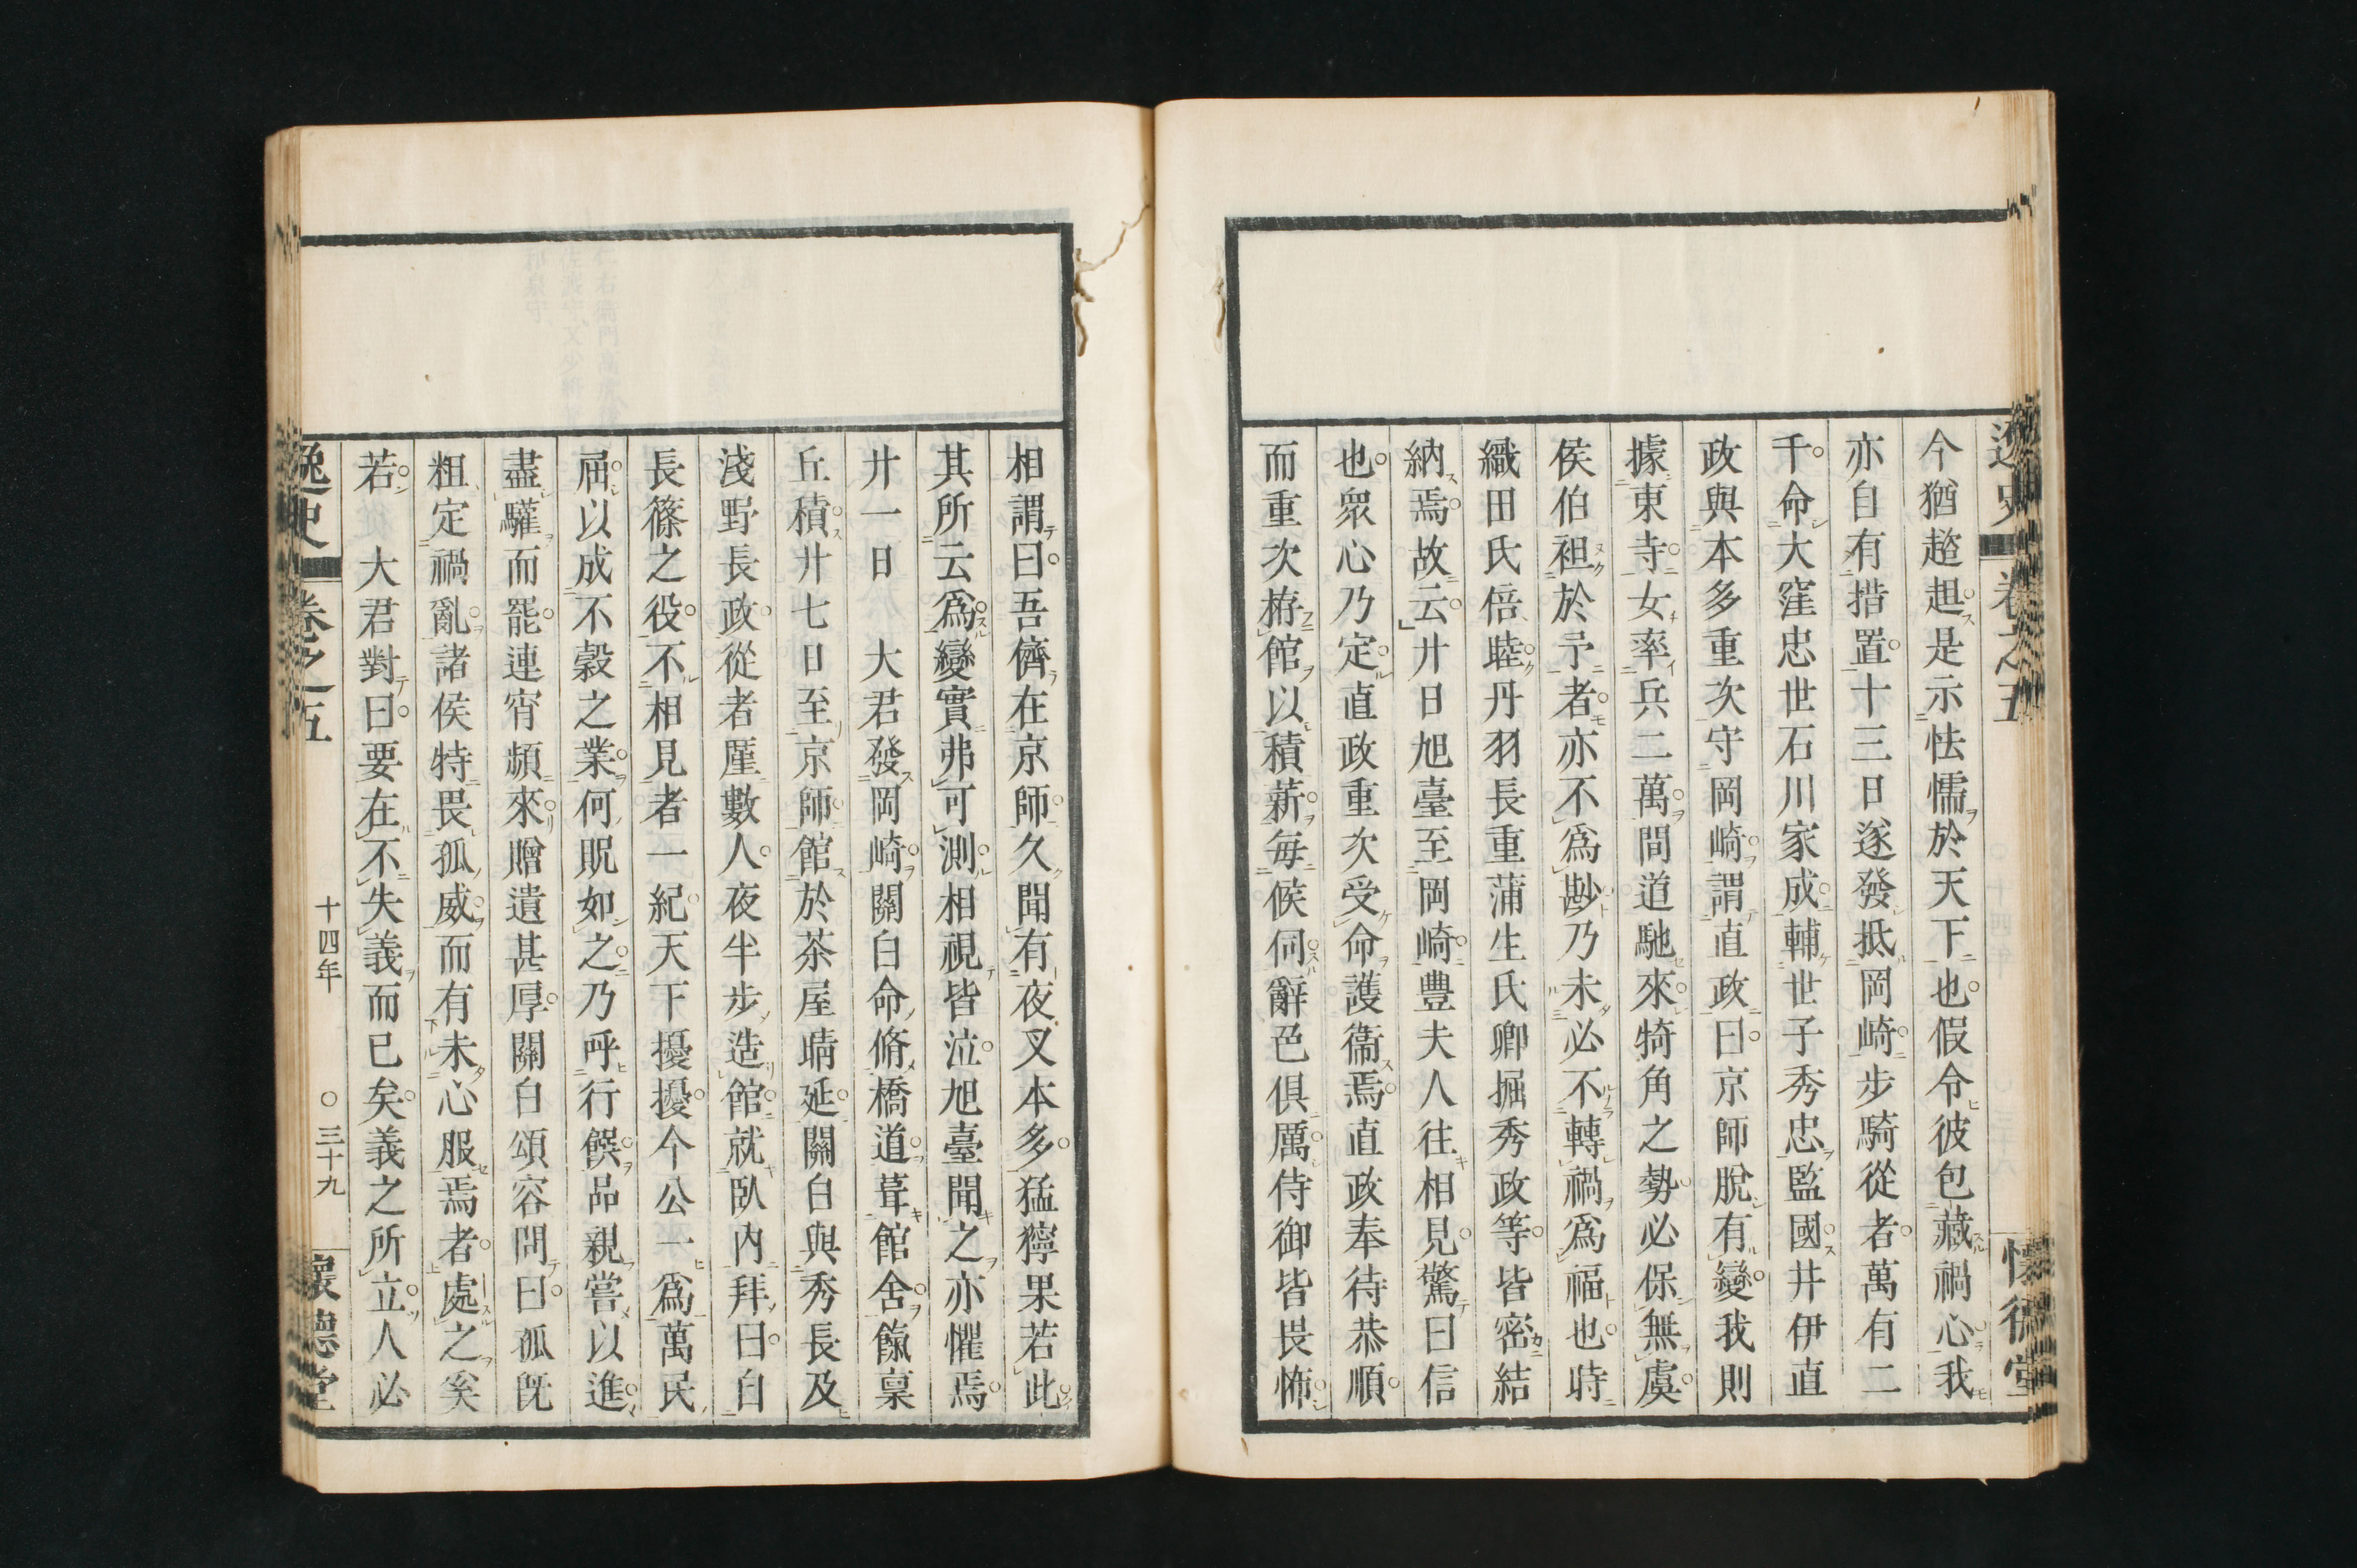 逸史 卷之五 懷德堂
今猶趑趄是示怯懦於天下也假令彼包藏禍心我
亦自有措置十三日遂發抵岡崎步騎從者萬有二
千命大窪忠世石川家成輔世子秀忠監國井伊直
政與本多重次守岡崎謂直政曰京師脫有變我則
據東寺女率兵二萬間道馳來犄角之勢必保無虞
侯伯袒於予者亦不爲尠乃未必不轉禍爲福也時
織田氏倍睦丹羽長重蒲生氏卿掘秀政等皆密結
納焉故云廿日旭臺至岡崎豊夫人往相見驚曰信
也衆心乃定直政重次受命護衞焉直政奉待恭順
而重次栫館以積薪每候伺辭色俱厲侍御皆畏怖
相謂曰吾儕在京師久聞有夜叉本多猛獰果若此
其所云爲變實弗可測相視皆泣旭臺聞之亦懼焉
廿一日 大君發岡崎關白命脩橋道葺館舍餼稟
丘積廿七日至京師館於茶屋晴延關白與秀長及
淺野長政從者厪數人夜半步造館就臥內拜曰自
長篠之役不相見者一紀天下擾擾今公一爲萬民
屈以成不穀之業何貺如之乃呼行饌品親嘗以進
盡驩而罷連宵頻來贈遺甚厚關白頌容問曰孤旣
粗定禍亂諸侯特畏孤威而有未心服焉者處之奚
若 大君對曰要在不失義而已矣義之所立人必
逸史 卷之五 十四年 〇三十九 懷德堂